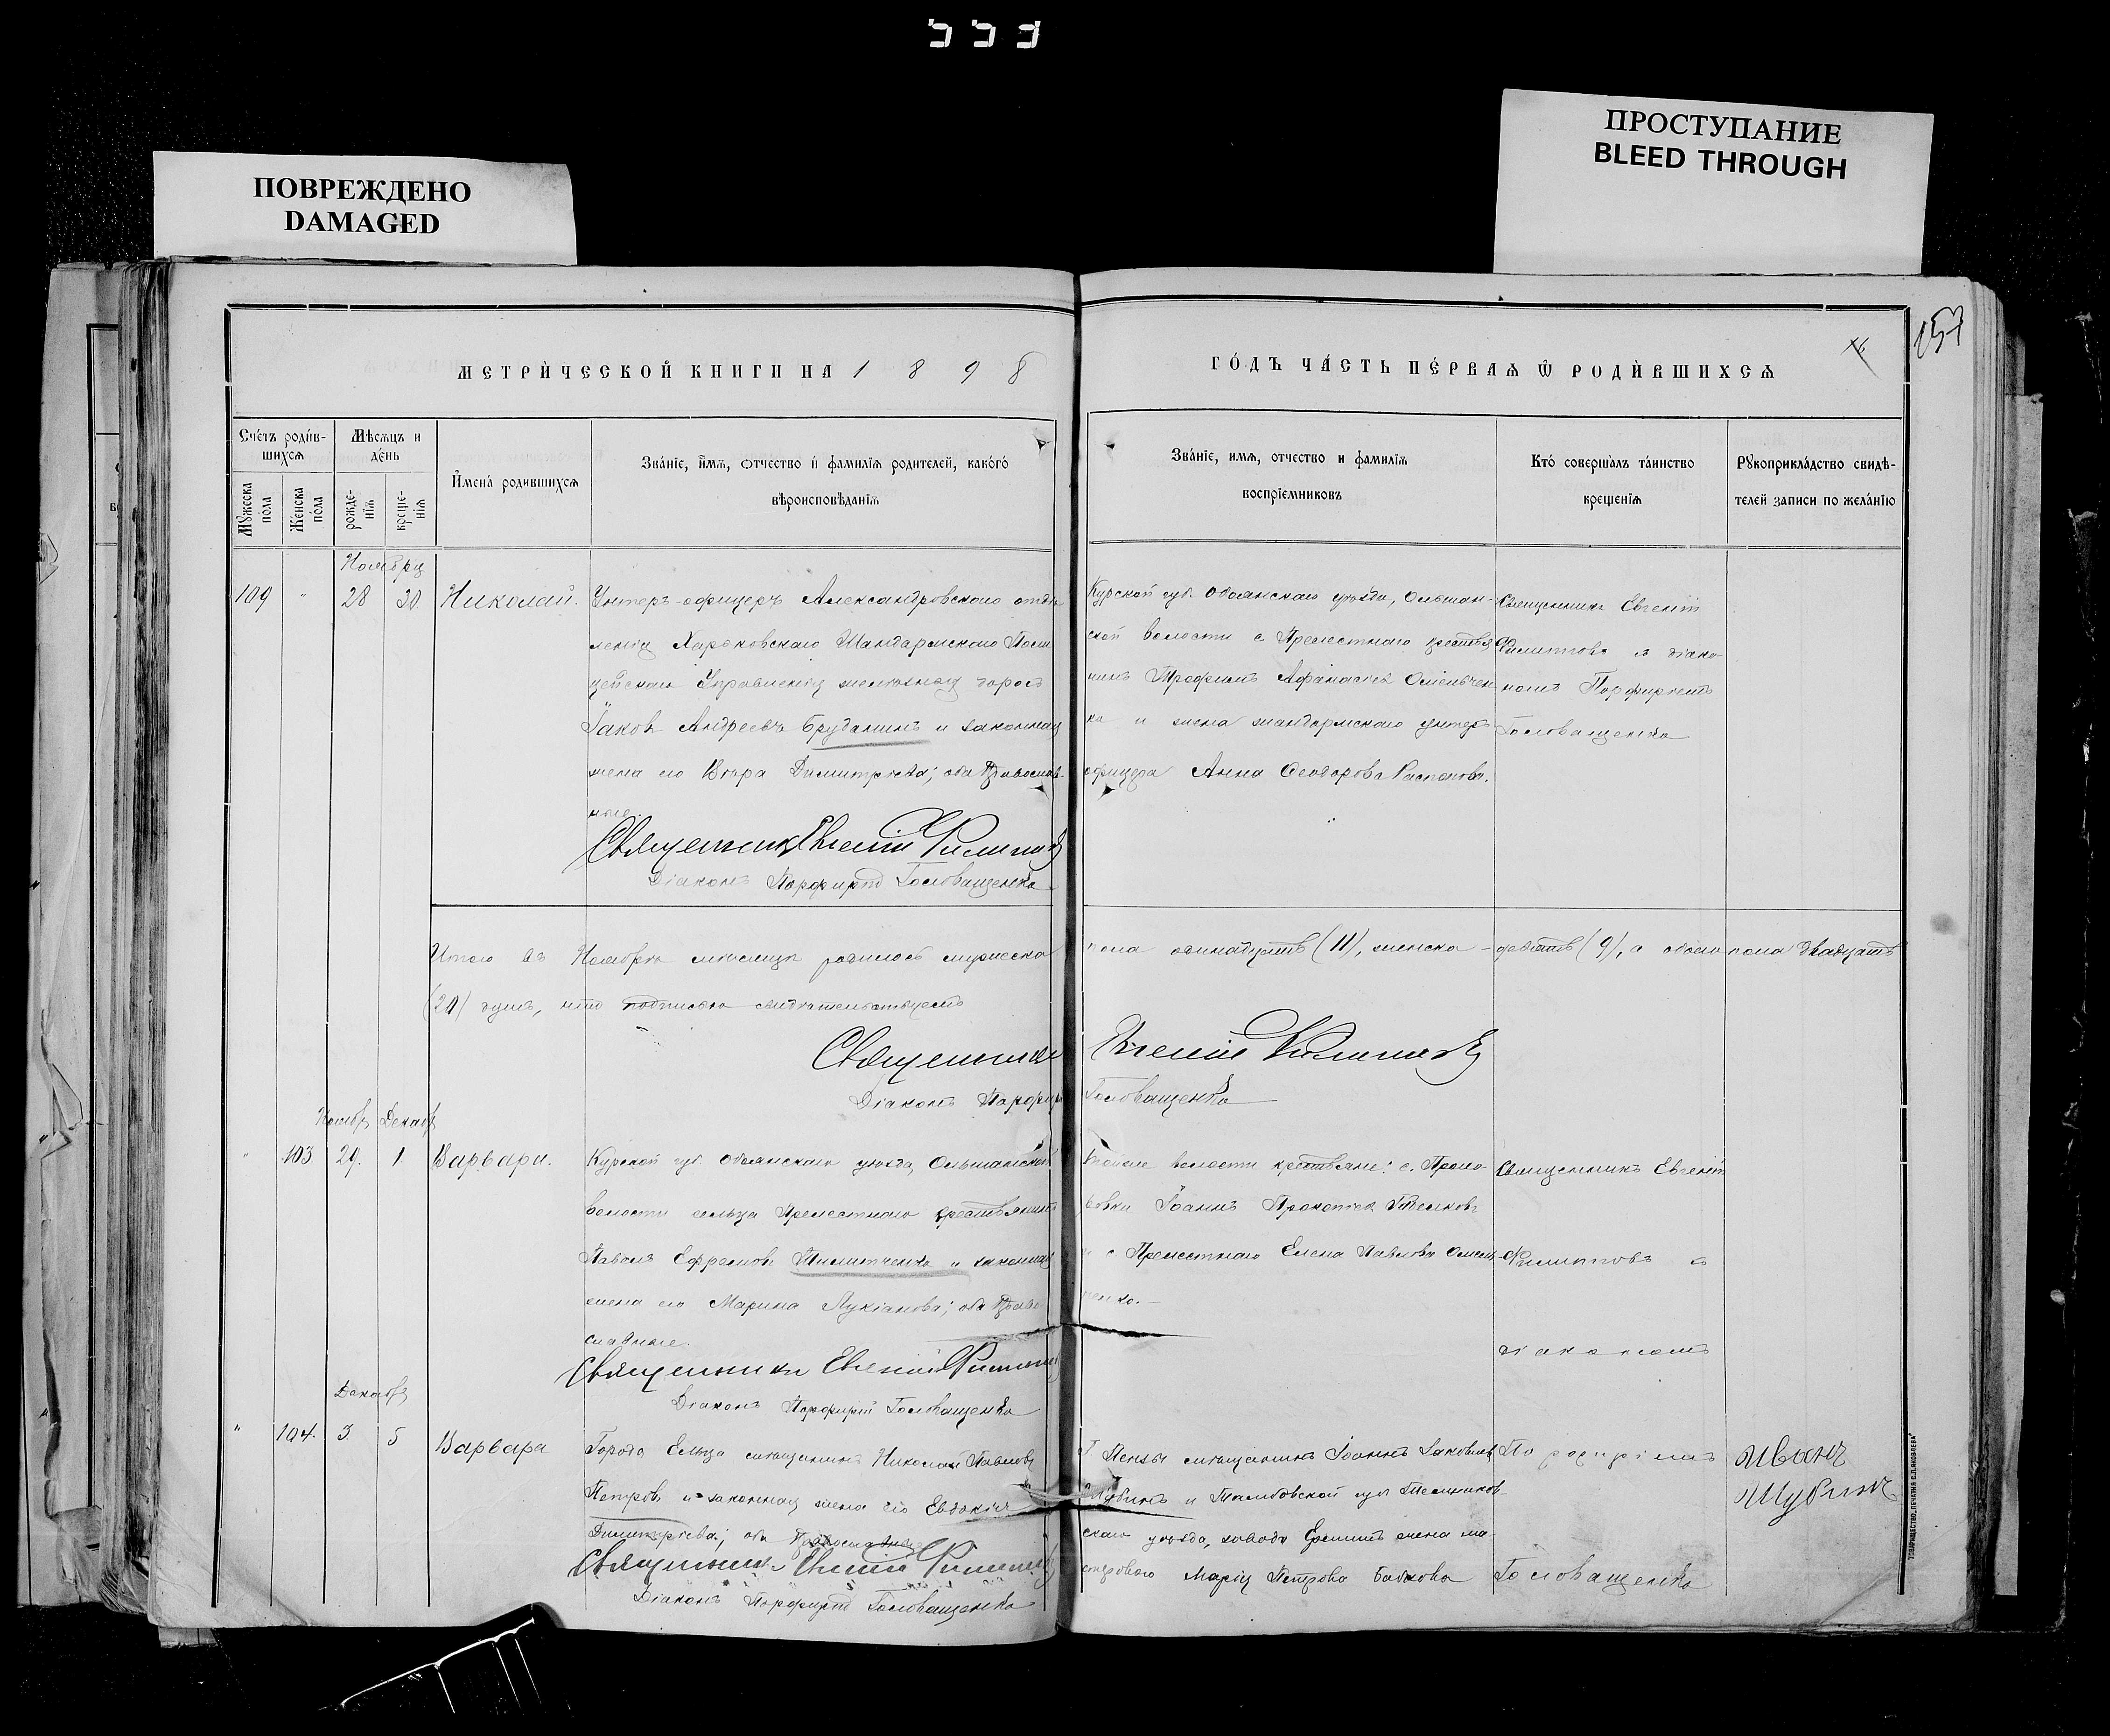 ПОВРЕЖДЕНО
DAMAGED
ПРОСТУПАНИЕ
BLEED THROUGH
157
МЕТРИ́ЧЕСКОЙ КНИГИ НА 1898
ГО́ДЪ ЧА́СТЬ ПЕ́РВАѦ Ѿ РОДИ́ВШИХСѦ
Сче́тъ роди́в-
шихсѧ
Мѣсѧцъ и
де́нь
Мꙋ́жеска
по́ла
Же́нска
по́ла
рожде-
нїѧ
креще-
нїѧ
И҆мена̀ родившихсѧ
Зва́нїе, и҆́мѧ, ѻтчество и҆ фамилїѧ родителей, како́гѡ
вѣроисповѣданїѧ
Зва́нїе, имѧ, отчество и фамилїѧ
воспрїемниковъ
Кто́ соверша́лъ та́инство
крещенїѧ
Рꙋкоприкла́дство свидѣ-
телей записи по жела́нїю
Ноября
109 " 28 30 Николай.
Унтеръ-офицеръ Александровскаго отдѣ
ленія Харьковскаго Жандармскаго Поли
цейскаго Управленія желѣзныхъ дорогъ
Іаковъ Андреевъ Бруданинъ и законная
жена его Вѣра Димитріева; оба Православ-
ные
Священникъ Евгеній Филиповъ
Діаконъ Порфирій Головащенко
Курской губ. Обоянскаго уѣзда, Ольшан-
ской волости с. Прелестнаго крестья
нинъ Трофимъ Афанасіев Омельчен
ко и жена жандармскаго унтеръ
офицера Анна Феодорова
Священникъ Евгеній
Филипповъ съ діако-
номъ Порфиріемъ
Головащенко
Итого въ Ноябрѣ мѣсяцѣ родилось мужеска
пола одинадцать (11), женска - девять (9), а обоего пола двадцать
(20) душъ, подписью свидѣтельствуемъ
Священникъ Евгеній Филиповъ
Діаконъ Порфирій Головащенко
Ноябр Декабр
" 103 29. 1 Варвара.
Курской губ. Обоянскаго уѣзда, Ольшанской
волости сельца Прелестнаго крестьянинъ
Павелъ Ефремовъ и законная
жена его Марина Лукіанова; оба Право
славные.
Священникъ Евгеній Филиповъ
Діаконъ Порфирій Головащенко
волости крестьяне: с. Прохо-
ровки Іоаннъ Прокопіев
и с. Прелестнаго Елена Павлова Омель
ченко.-
Священникъ Евгеній
Филипповъ съ
діакономъ
Декабр
" 104. 3. 5 Варвара
Города Ельца мѣщанинъ Николай Павловъ
Петровъ и законная жена его Евдокія
Димитріева; оба Православные
Священникъ Евгеній Филиповъ
Діаконъ Порфирій Головащенко
Г. Пензы мѣщанинъ Іоаннъ Іаковлев
Шубинъ и Тамбовской губ. Темников-
скаго уѣзда, завода Еремшъ жена ма-
стероваго Марія Петрова Бабкова
Порфиріемъ
Головащенко
Иванъ
Шубинъ
ТОВАРИЩЕСТВО „ПЕЧАТНЯ С.П.ЯКОВЛЕВА"